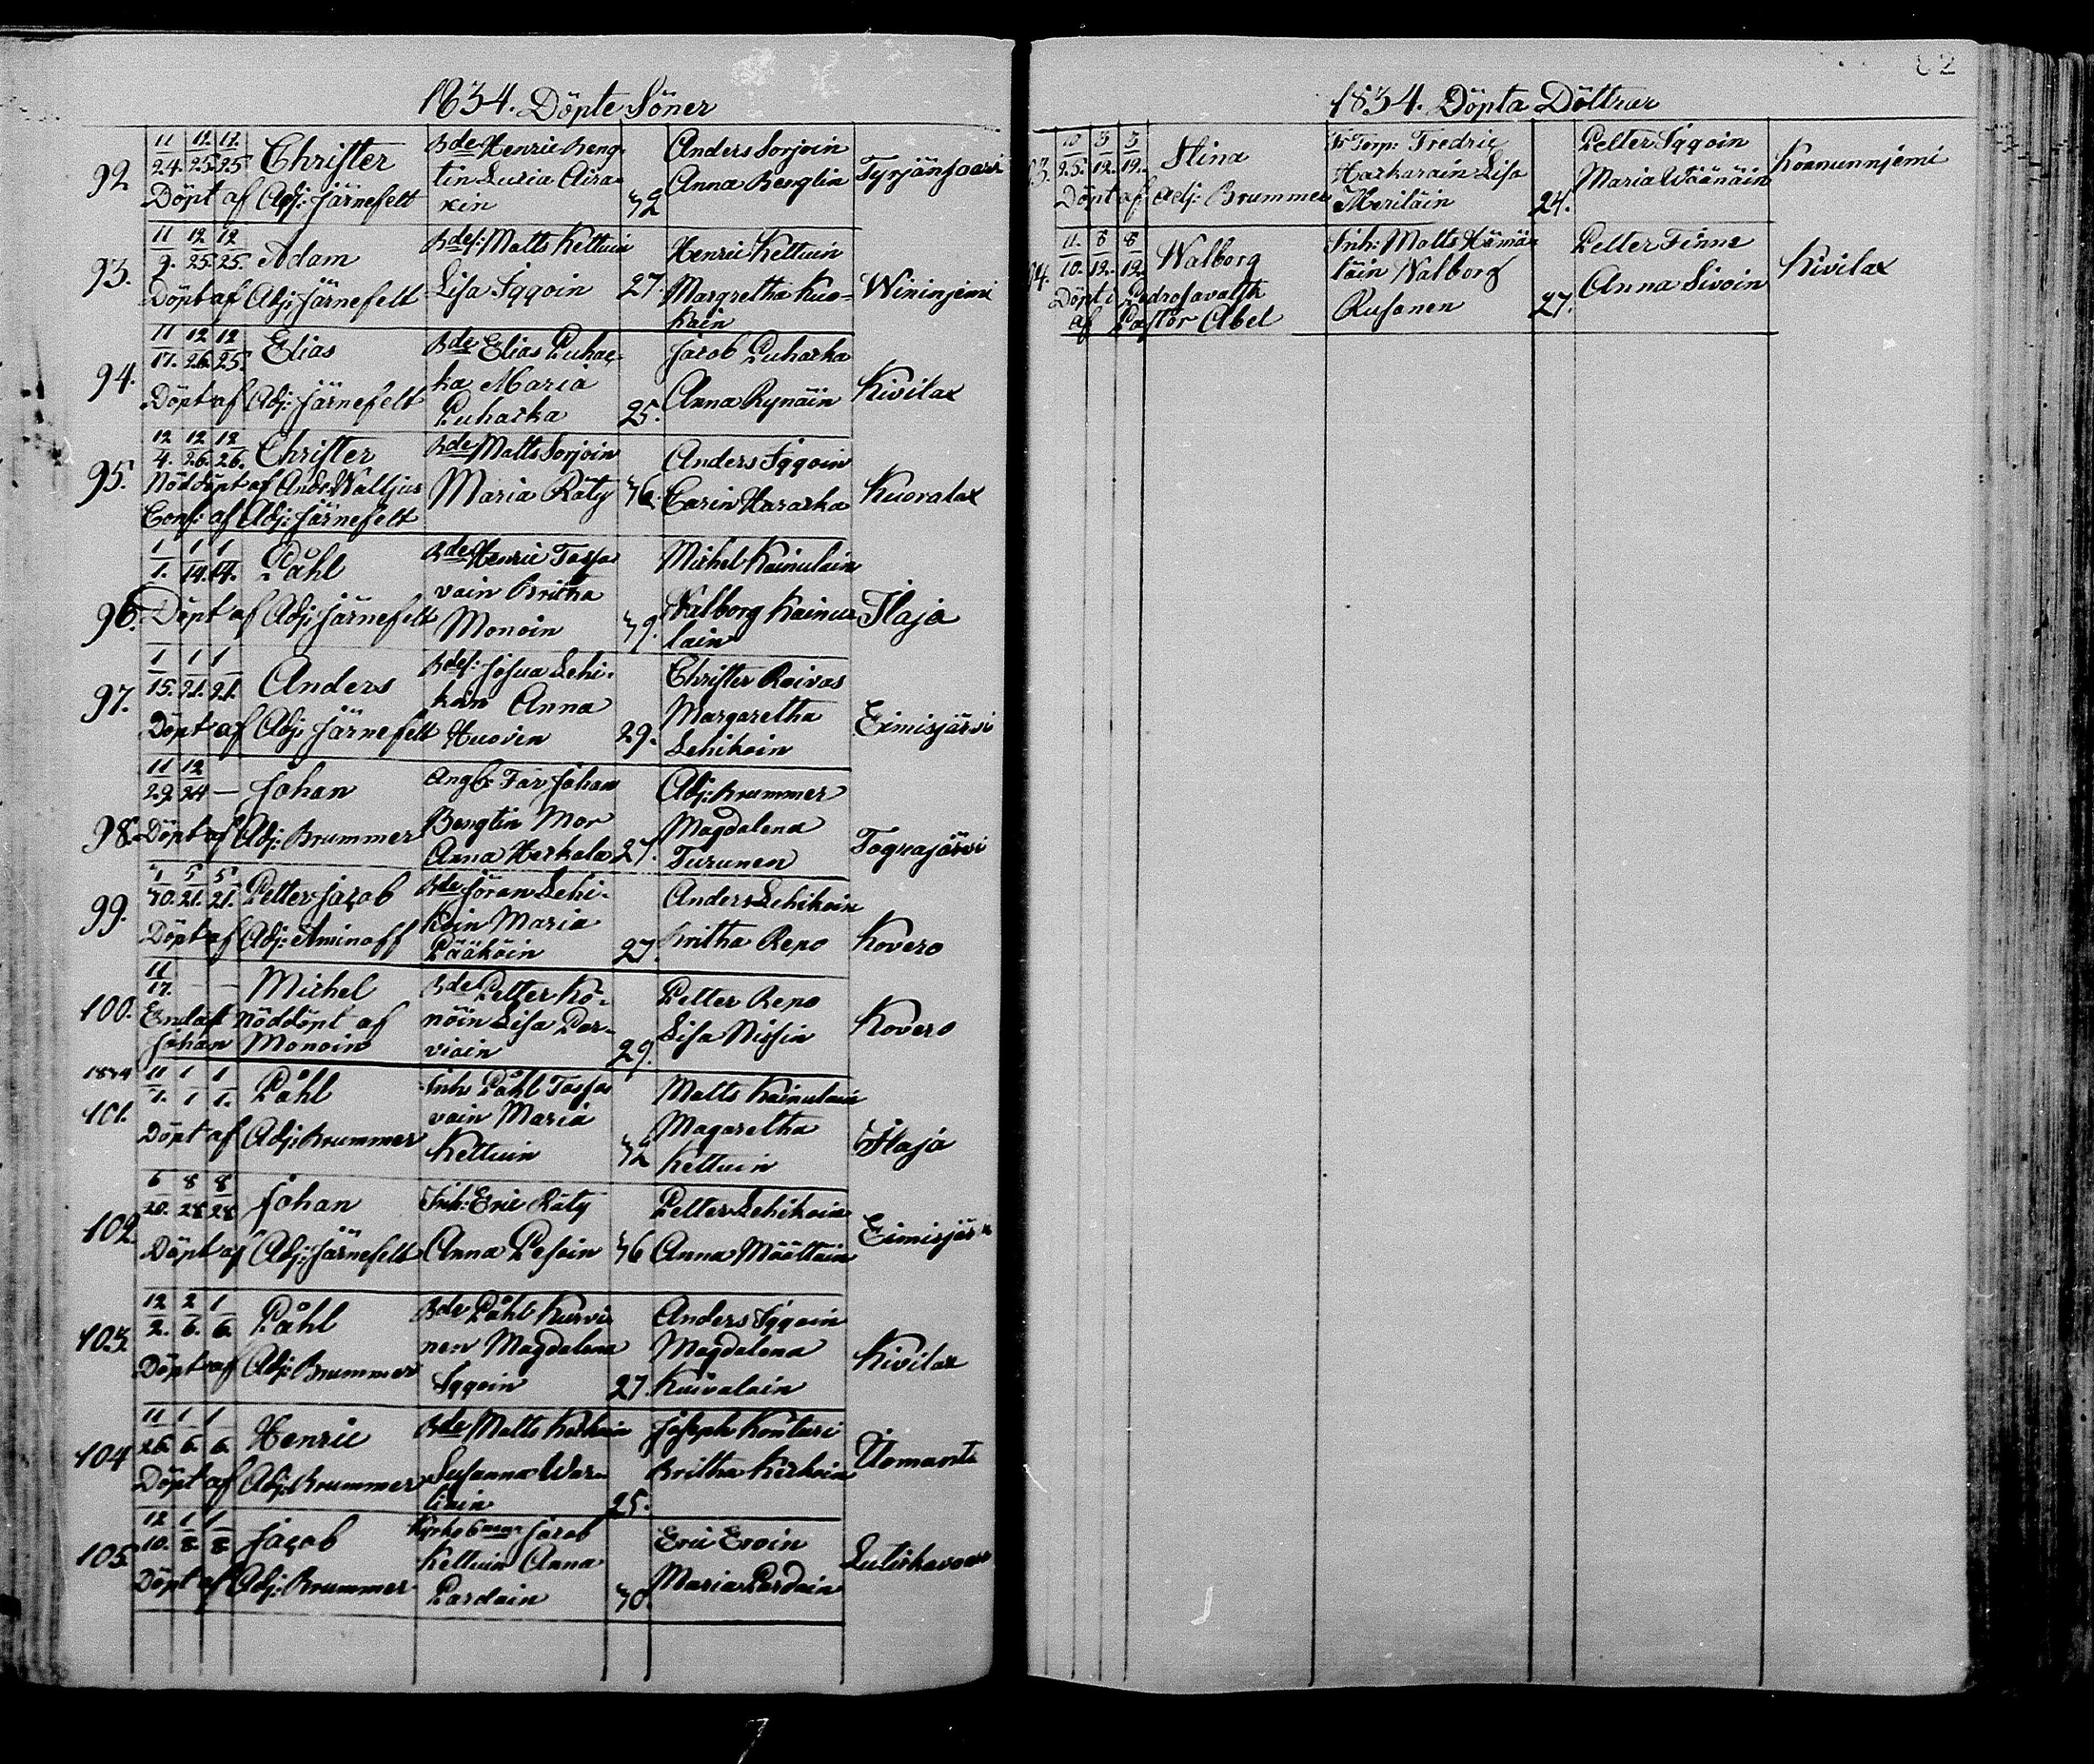 1834. Döpte Söner
92 11/24. 12/25. 12/25 Christer Bde Henric Beng- Anders Sorjoin
tin Lucia Aira- Anna Benglin Tyrjänsaari
Döpt af Adj: Järnefelt xen 42
93. 11/9. 12/25. 12/25. Adam Bdes: Matts Kettuin Henric Kettuin
Döpt af Adj: Järnefelt Lisa Iggoin 27. Margretha Kuo- Wirinjemi
kain
94. 11/17. 12/26. 12/25. Elias Bde Elias Puhac- Jacob Puharka
ka Maria Kivilax
Döpt af Adj: Järnefelt Puharka 25. Anna Rynäin
95. 12/4. 12/26. 12/26. Christer Bde Matts Sorjoin Anders Iggoin
Nöddöpt af And: Walljus Maria Räty 36. Carin Hararka Kuoralax
Conf: af Adj: Järnefelt
96. 1/1. 1/14. 1/14. Påhl Bde Henric Tassa- Michel Kainulain
vain Britha
Döpt af Adj: Järnefelt Monoin 39. Walborg Kainu- Ilaja
lain
97. 1/15. 1/21. 1/21. Anders Bdes: Josua Lehi- Christer Roivas
kön Anna Margaretha
Döpt af Adj: Järnefelt Huovin 29. Lehikoin Eimisjärvi
98. 11/29. 12/24 — Johan Angb: Far Johan Adj: Brummer
Döpt af Adj: Brummer Bengtin Mor Magdalena
Anna Herkola 27. Turunen Tograjärvi
99. 4/30. 5/21. 5/21. Petter Jacob Bde Jöran Lehi- Anders Lehikoin
koin Maria
Döpt af Adj: Aminoff Pääköin 27. Britha Repo Kovero
100. 11/17. — Michel Bde Petter Kö- Petter Repo
Endast nöddöpt af nöin Lisa Par- Lisa Nissin Kovero
Johan Monoin viain 29.
1834
101. 11/1. 1/1 1/1. Påhl Inh: Påhl Tassa- Matts Kainulain
vain Maria Magaretha
Döpt af Adj: Brummer Kettuin 42 Kettuin Ilaja
102 6/20. 8/28 8/28 Johan Inh: Eric Räty Petter Lehikoin
Döpt af Adj: Järnefelt Anna Pesoin 36 Anna Määttäin Eimisjärv
103. 12/2. 2/6. 1/6. Påhl Bde Påhl Kurvi- Anders Iggoin
nen Magdalena Magdalena
Döpt af Adj: Brummer Iggoin 27. Kuivalain Kivilax
104 11/26. 1/6. 1/6. Henric Bde Matts Kerkoin Joseph Konturi
Döpt af Adj: Brummer Susanna War- Britha Kerkoin Ilomants
tiain 25.
105. 12/10. 1/8. 1/8. Jacob Jacob Eric Eroin
Kettuin Anna
Döpt af Adj: Brummer Pardain 30. Maria Pardain
82
1834. Döpta Döttrar
93. 10/25. 3/12. 3/19. Stina Torp: Fredric Petter Iggoin
Harkarain Lisa Maria Wäänäin Koanunnjemi
Döpt af Adj: Brummer Meriläin 24.
94. 11/10. 8/12. 8/12. Walborg Inh: Matts Hämä- Petter Finne
läin Walborg Anna Sivoin Kivilax
Döpt i Pedrosavatsk Rusanen 27.
af Pastor Abel